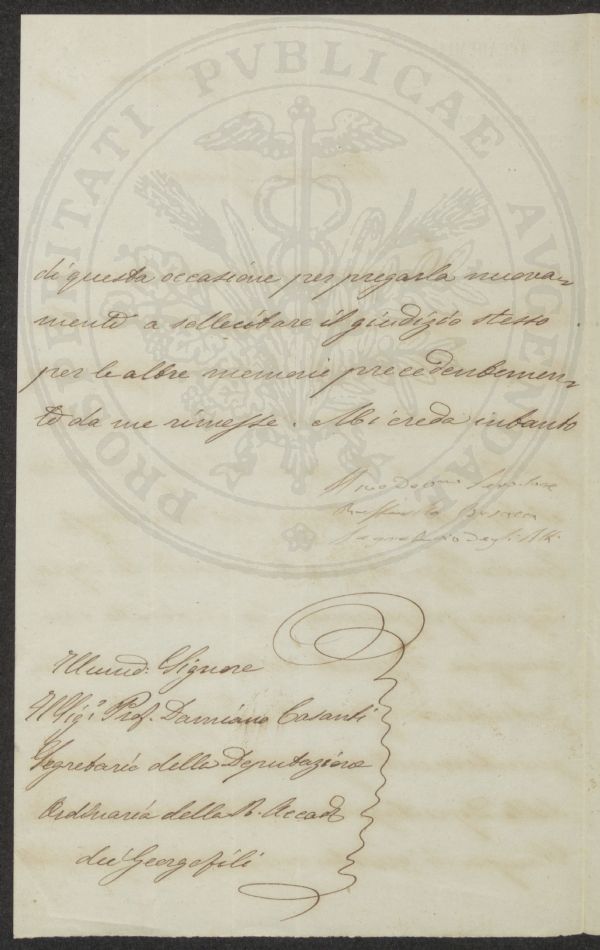 PROSPERITATI PVBLICAE AVGENDAE
di questa occasione per pregarla nuova=
mente a sollecitare il giudizio stesso
per le altre memorie precedentemen=
te da me rimesse. Mi creda intanto
Suo Devmo Servitore
Segretario degli Atti
Illmo. Signore
Il Sig.r Prof. Damiano Casanti
Segretario della Deputazione
Ordinaria della R. Accad.
dei Georgofili